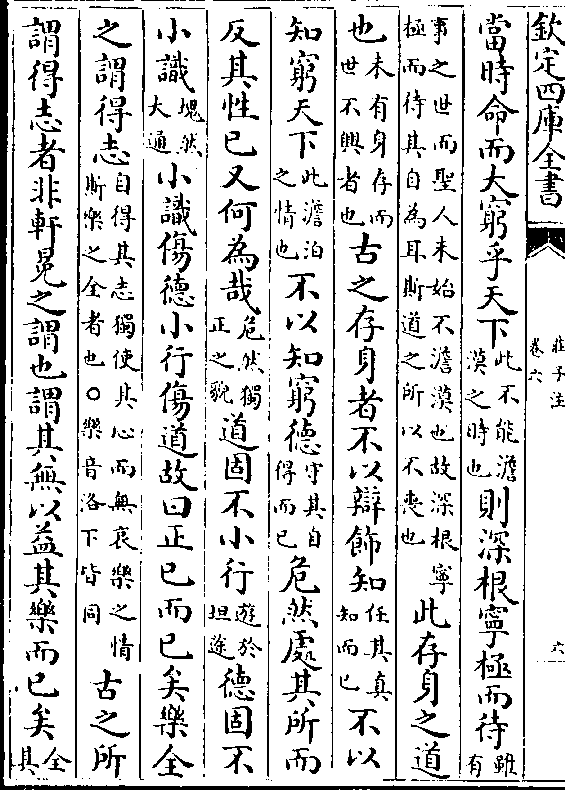 欽定四庫全書
莊子注
卷六
六
當時命而大窮乎天下此不能澹漠之時也則深根寧極而待雖有
事之世而聖人未始不澹漠也故深根寧極而待其自為耳斯道之所以不喪也此存身之道
也未有身存而世不興者也古之存身者不以辯飾知任其真知而已不以
知窮天下此澹泊之情也不以知窮德守其自得而已危然處其所而
反其性已又何為哉危然獨正之貌道固不小行遊於坦途德固不
小識塊然大通小識傷德小行傷道故曰正已而已矣樂全
之謂得志自得其志獨使其心而無哀樂之情斯樂之全者也○樂音洛下皆同古之所
謂得志者非軒冕之謂也謂其無以益其樂而已矣全其